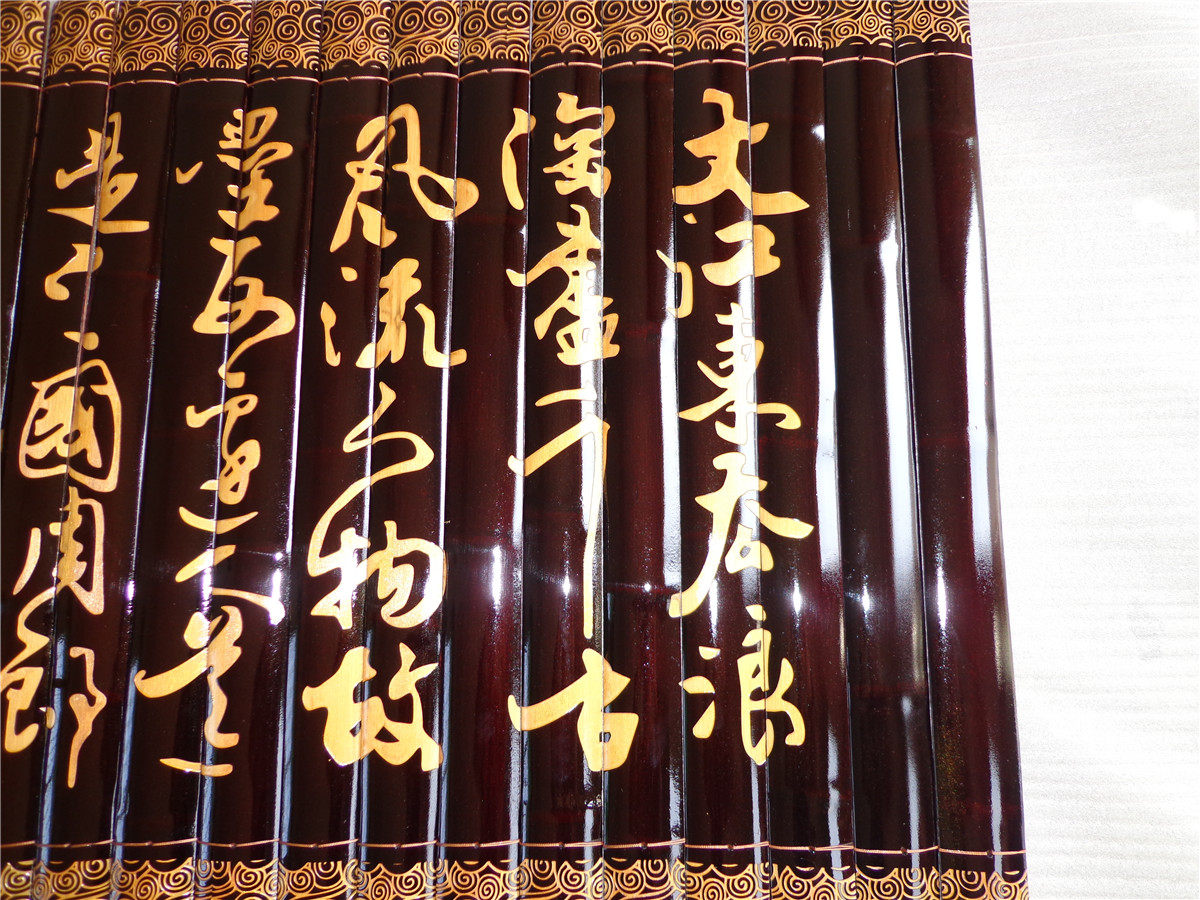 大江東去浪
淘盡千古
風流人物故
壘西邊人道
是三國周郎